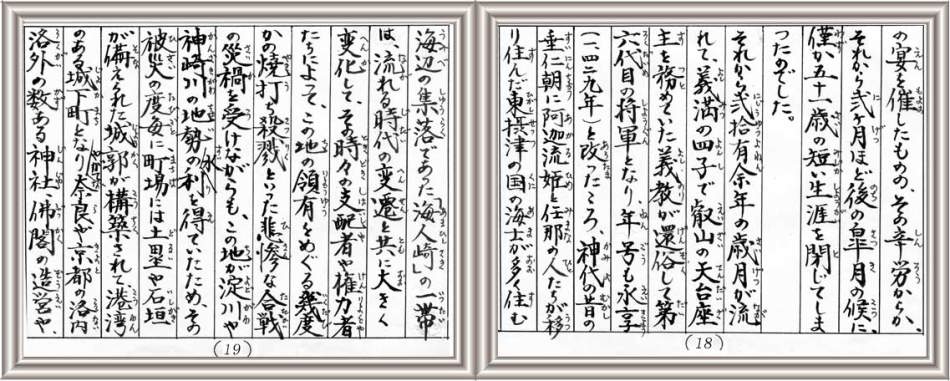 の宴を催したものの、その辛労からか、
それから弐ヶ月ほど後の皐月の候に、
僅か五十一歳の短い生涯を閉じてしま
ったのでした。
それから弐拾有余年の歳月が流
れて、義満の四子で叡山の天台座
主を務めていた義教が還俗して第
六代目の将軍となり、年号も永享
(一、四二九年)と改ったころ、神代の昔の
垂仁朝に阿迦流姫と任那の人たちが移
り住んだ東摂津の国の海士が多く住む
(18)
海辺の集落であった「海人崎」の一帯
は、流れる時代の変遷と共に大きく
変化して、その時々の支配者や権力者
たちによって、この地の領有をめぐる幾度
かの焼打ち、殺戮といった悲惨な合戦
の災禍を受けながらも、この地が淀川や
神崎川の地勢の水利を得ていたため、その
被災の度毎に町場には土塁や石垣
が備えられた城郭が構築されて港湾
のある城下町となり、奈良や京都の洛内
洛外の数ある神社佛閣の造営や、
(19)